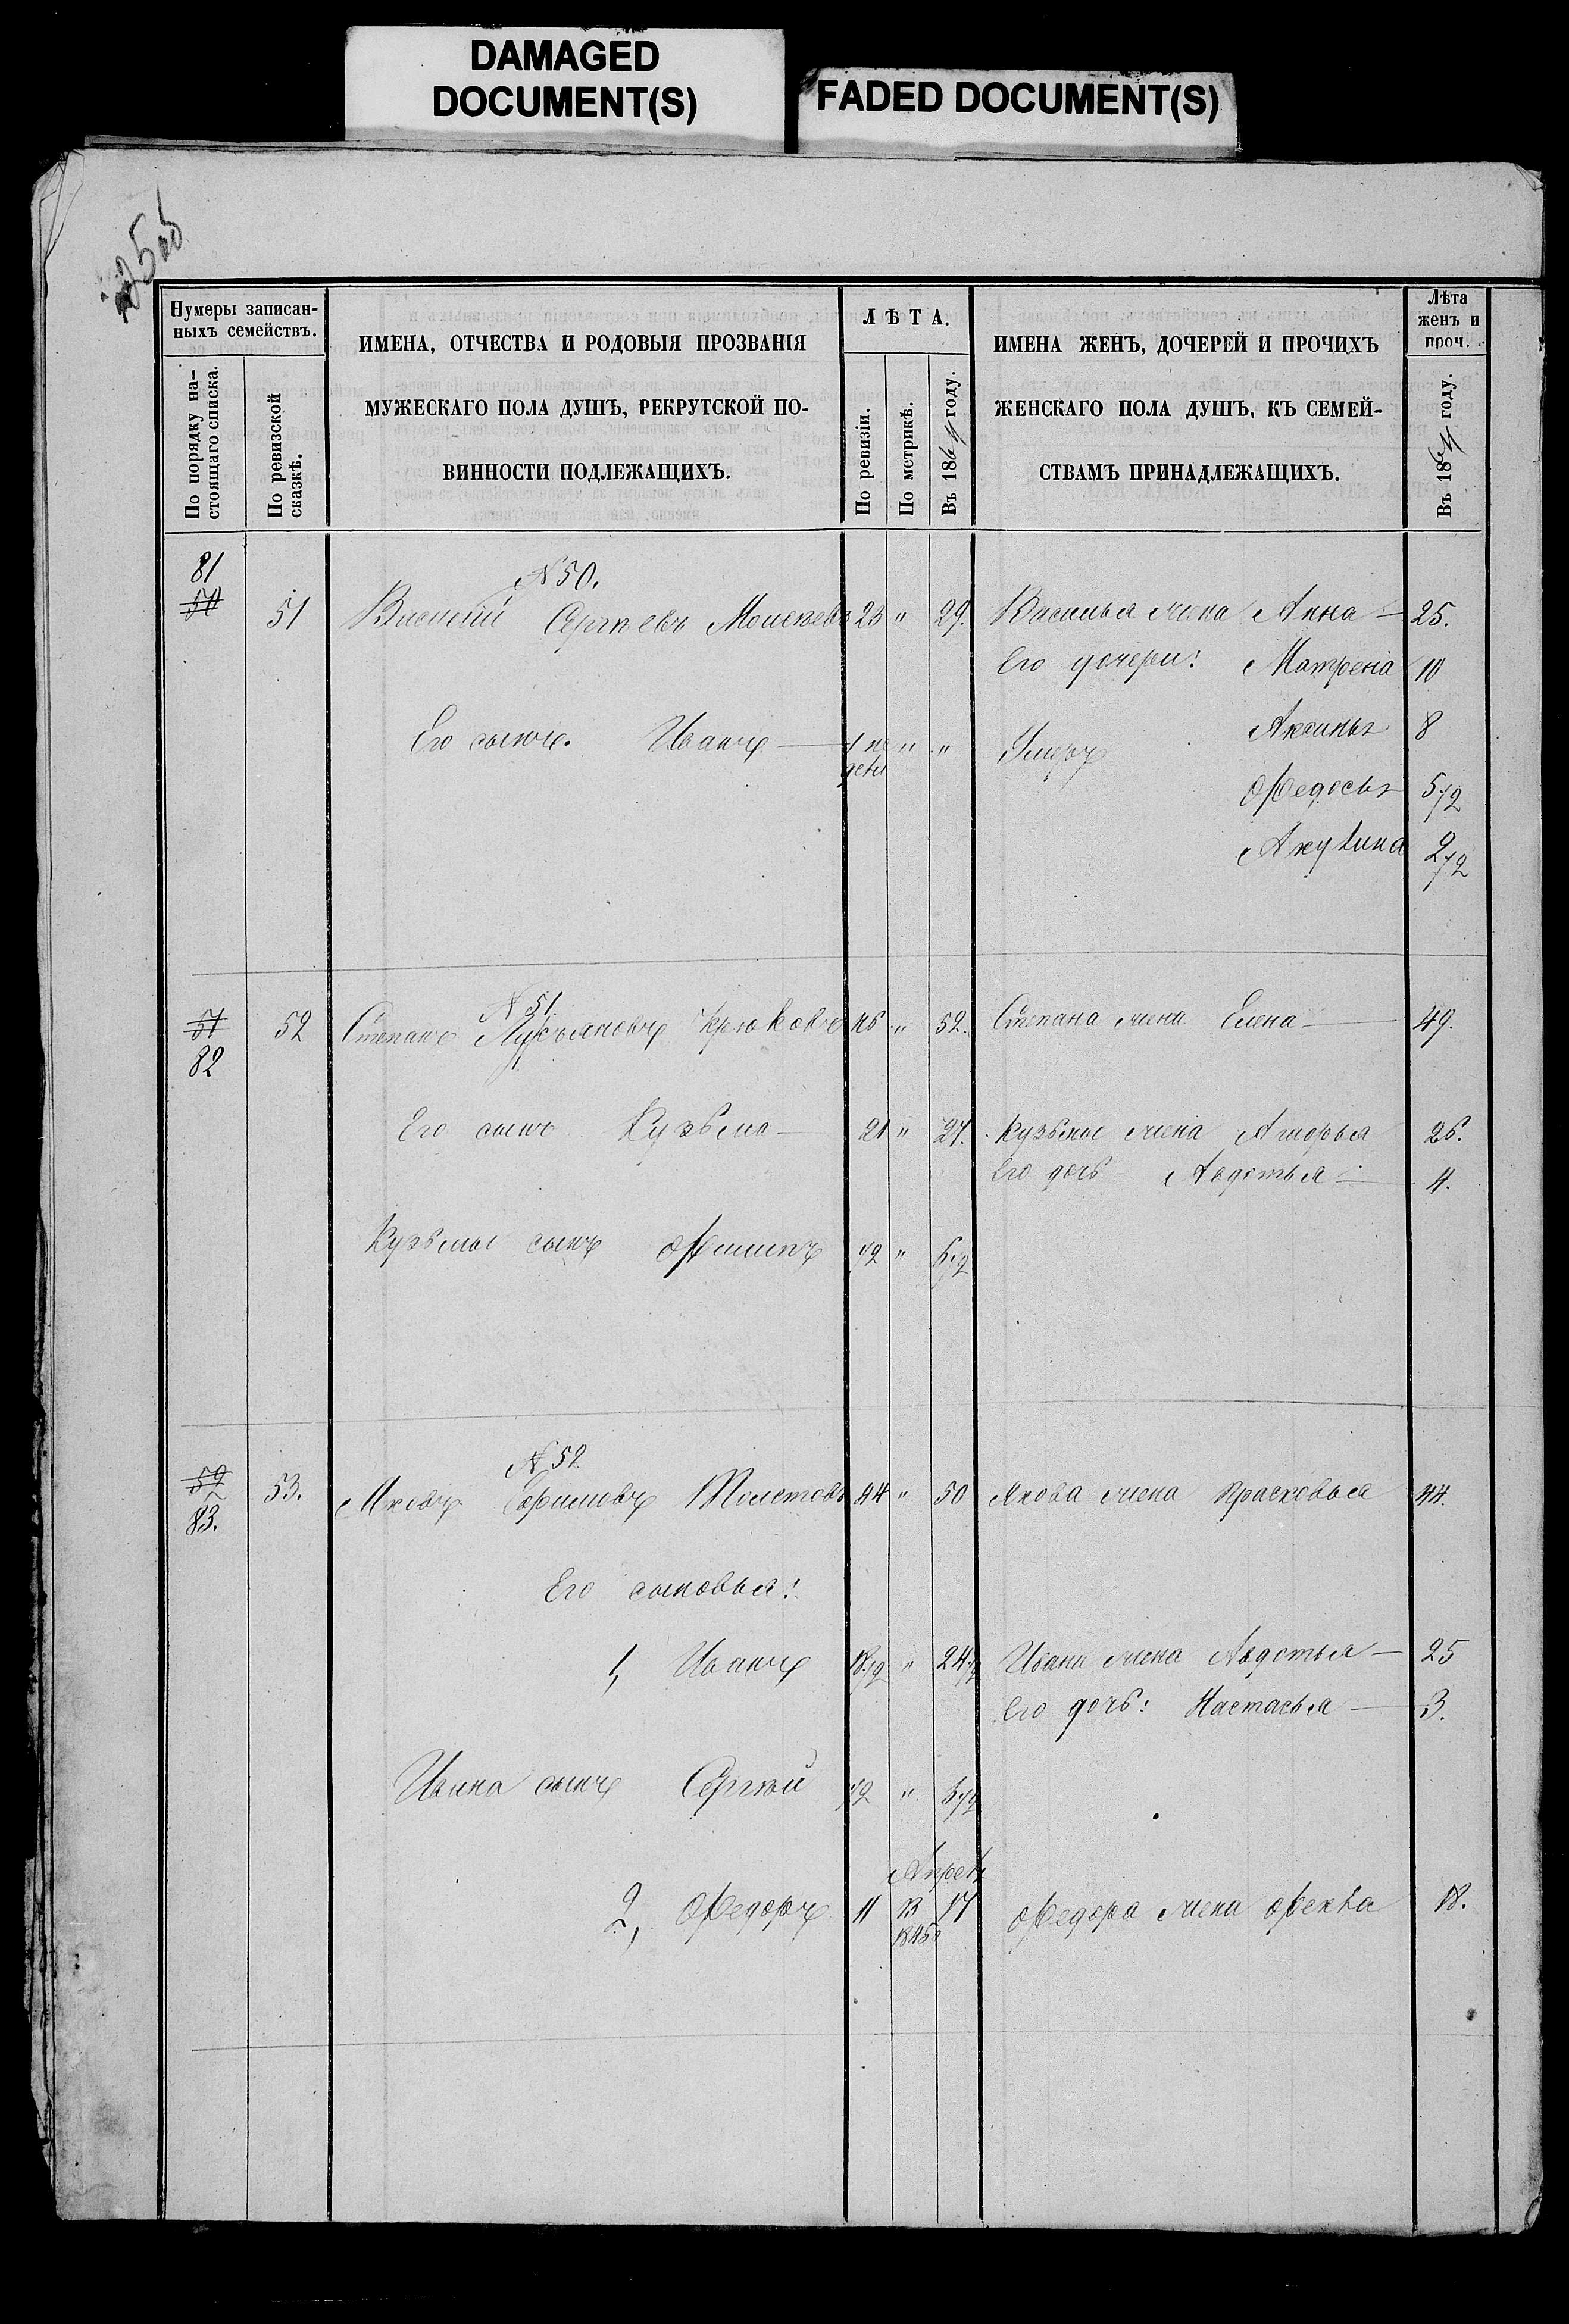 DAMAGED
DOCUMENT(S)
FADED DOCUMENT(S)
Нумеры записан-
ныхъ семействъ.
По порядку на-
стоящаго списка.
По ревизской
сказкѣ.
ИМЕНА, ОТЧЕСТВА И РОДОВЫЯ ПРОЗВАНІЯ
МУЖЕСКАГО ПОЛА ДУШЪ, РЕКРУТСКОЙ ПО-
ВИННОСТИ ПОДЛЕЖАЩИХЪ.
ЛѢТА.
По ревизіи.
По метрикѣ.
Въ 1864 году.
ИМЕНА ЖЕНЪ, ДОЧЕРЕЙ И ПРОЧИХЪ
ЖЕНСКАГО ПОЛА ДУШЪ, КЪ СЕМЕЙ-
СТВАМЪ ПРИНАДЛЕЖАЩИХЪ.
Лѣта
женъ и
проч.
Въ 1864 году.
81
N 50.
50 51 Василій Сергѣевъ Моисѣевъ 23 " 29. Василья жена Анна — 25.
Его дочери: Матрена 10
Его сынъ. Иванъ — 1 не " " Умеръ Аксинья 8
дели
Федосья 5 1/2
Акулина 2 1/2
N 51
51 52 Степанъ Лукьяновъ Крюковъ 46 " 52. Степана жена Елена — 49.
82
Его сынъ Кузьма — 21 " 27. Кузьмы жена 26.
Его дочь Авдотья — 4.
Кузьмы сынъ Филипъ 1/2 " 6 1/2
N 52
52 53. Яковъ Ефимовъ Толстовъ 44 " 50 Якова жена Прасковья 44.
83.
Его сыновья:
1, Иванъ 18 1/2 " 24 1/2 Ивана жена Авдотья — 25
Его дочь: Настасья — 3.
Ивана сынъ Сергѣй 1/2 " 6 1/2
Апрѣл
2, Федоръ 11 13 17 Федора жена Фекла 18.